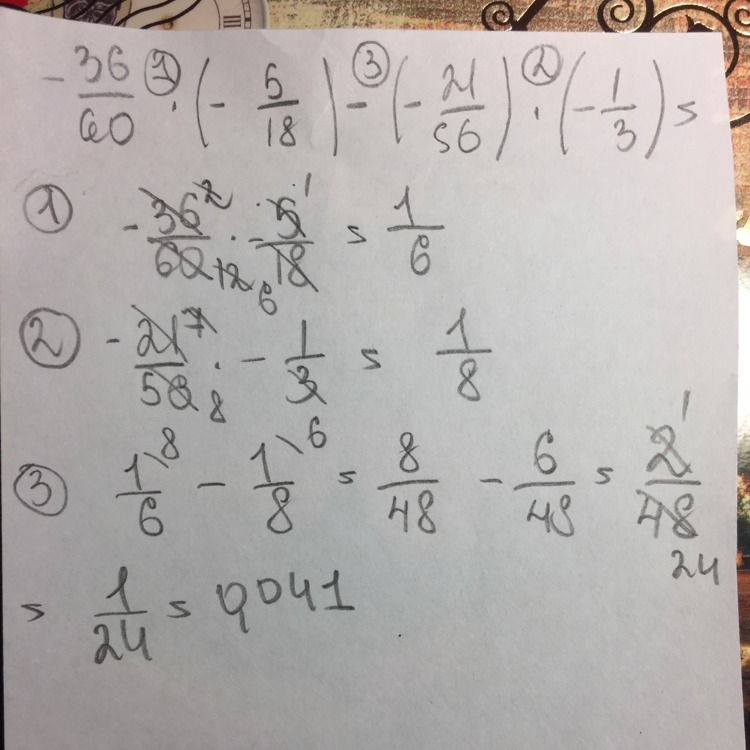 - 36/60 ① · (- 5/18) -③ (- 21/56) ② · (- 1/3) =
① - 36 2/60 12 · - 5 1/18 6 = 1/6
② - 21 7/56 8 · - 1/3 = 1/8
③ 1\8/6 - 1\6/8 = 8/48 - 6/48 = 2 1/48 24
= 1/24 = 0,041